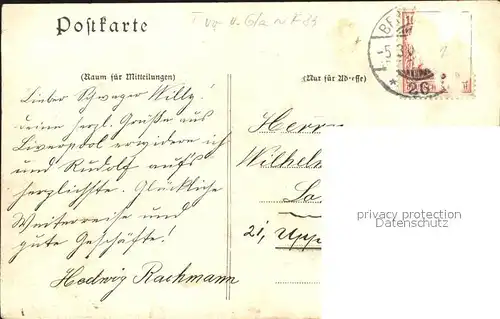 Postkarte
(Raum für Mitteilungen)
(Nur für Adresse)
BE
-5.3
26
Lieber Schwager Willy!
deine herzl. Grüße aus
Liverpool erwidern ich
und Rudolf aufs
herzlichste. Glückliche
Weiterreise und
gute Geschäfte!
Hedwig Rachmann
Herrn
Wilhelm
21, Upp
privacy protection
Datenschutz